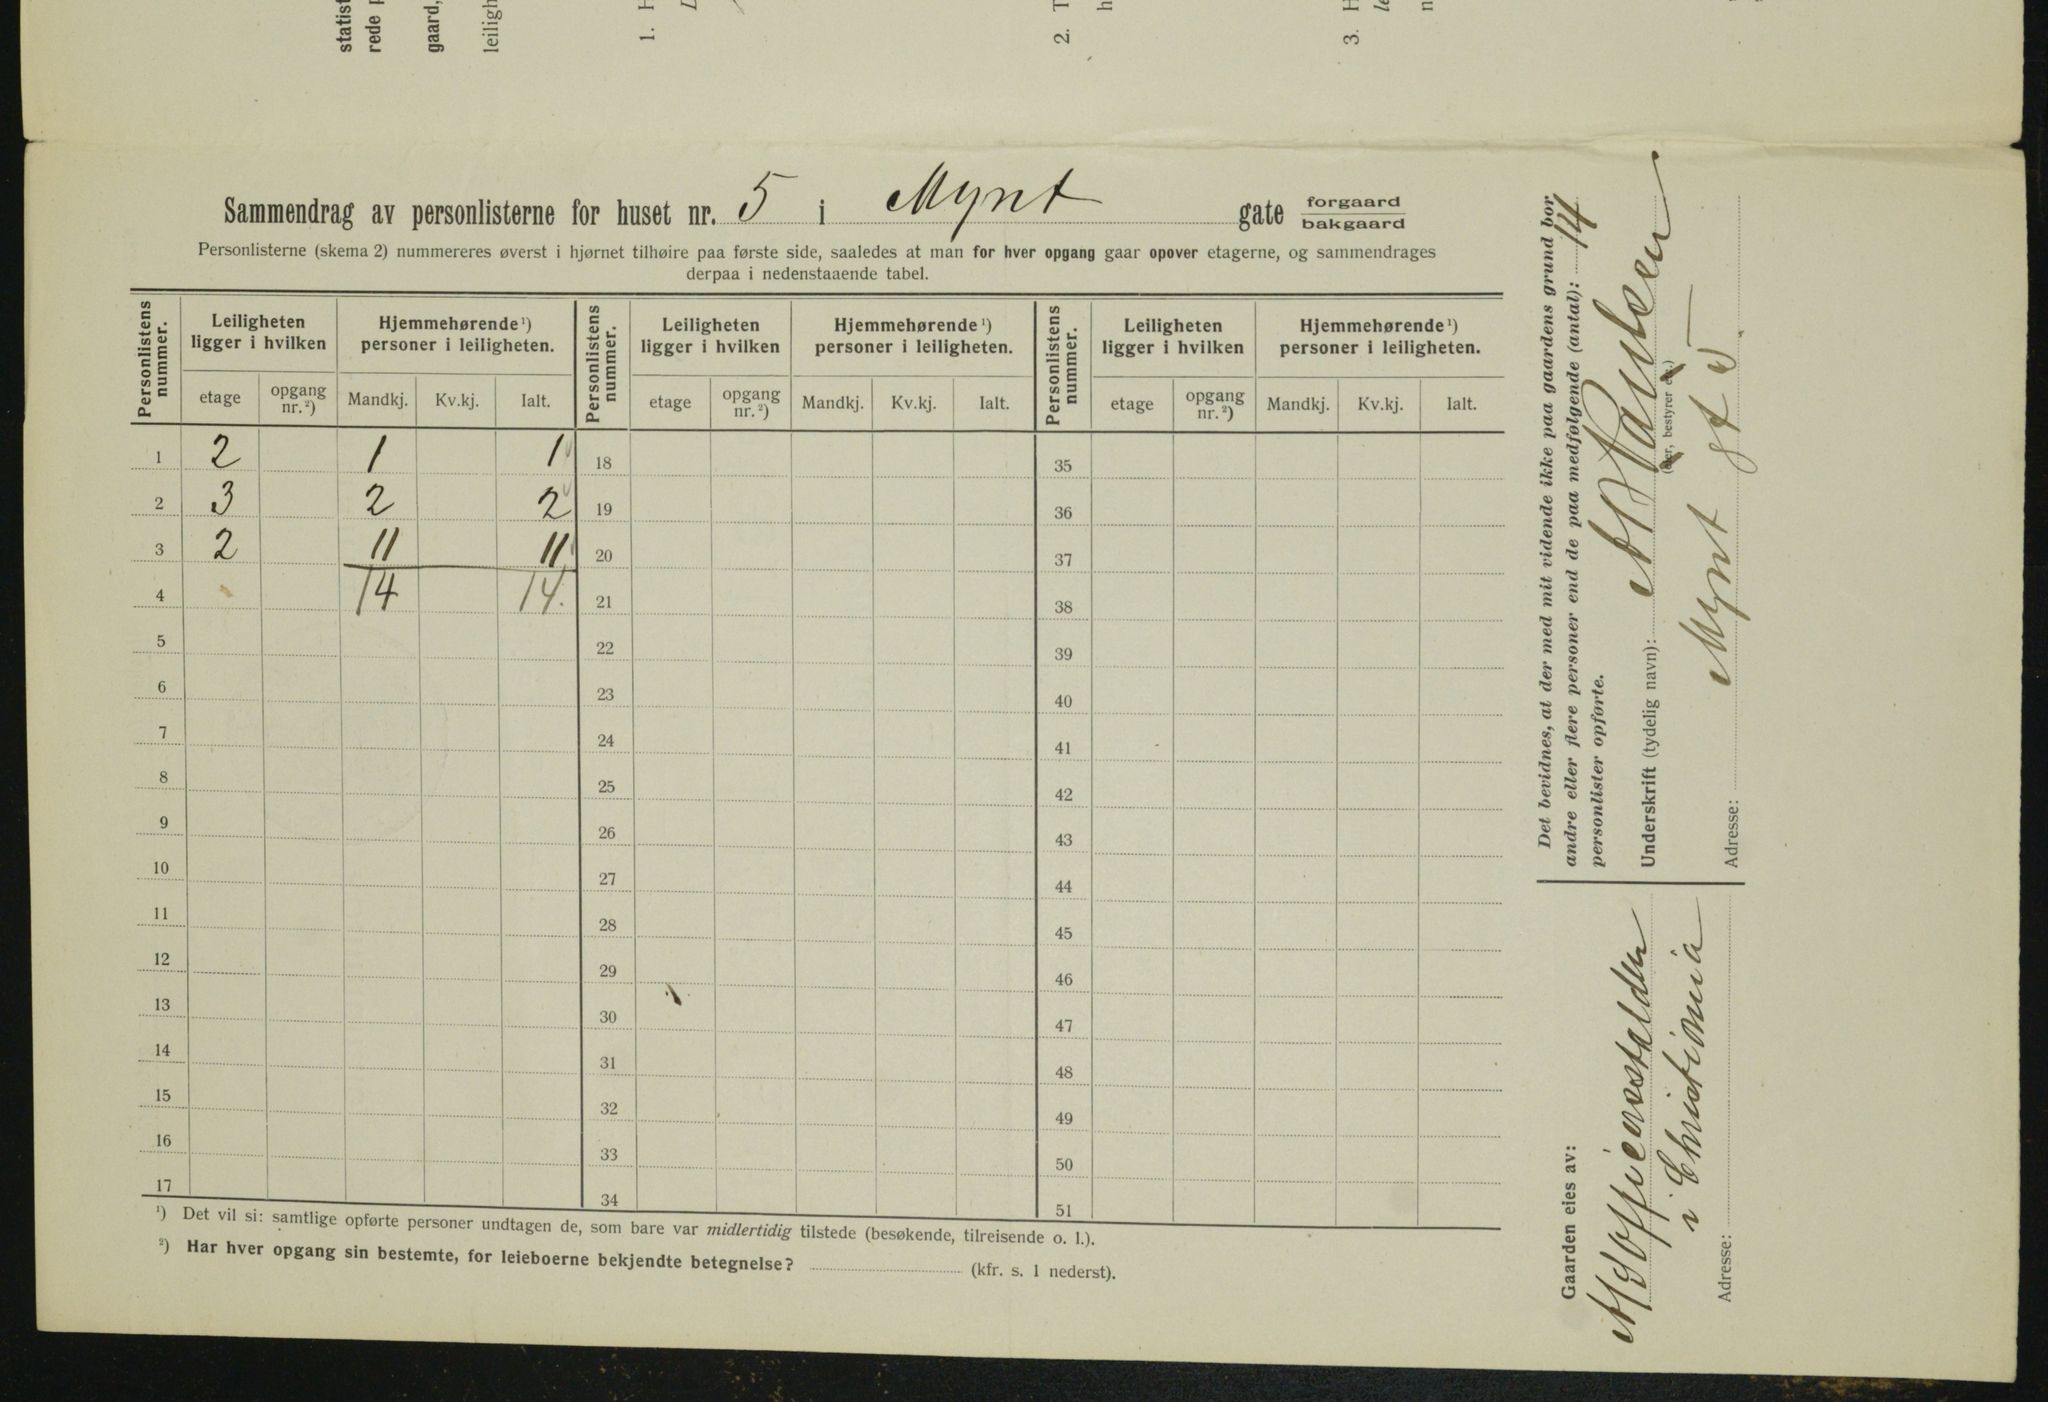 statist
rede p
gaard,
leilig
1. H
L
2. T
h
3. H
le
n
Sammendrag av personlisterne for huset nr. 5 i Mynt gate forgaard
bakgaard
Personlisterne (skema 2) nummereres øverst i hjørnet tilhøire paa første side, saaledes at man for hver opgang gaar opover etagerne, og sammendrages
derpaa i nedenstaaende tabel.
Personlistens nummer. Leiligheten ligger i hvilken Hjemmehørende ¹) personer i leiligheten. Personlistens nummer. Leiligheten ligger i hvilken Hjemmehørende ¹) personer i leiligheten. Personlistens nummer. Leiligheten ligger i hvilken Hjemmehørende ¹) personer i leiligheten.
etage opgang nr. ²) Mandkj. Kv.kj. Ialt. etage opgang nr. ²) Mandkj. Kv.kj. Ialt. etage opgang nr. ²) Mandkj. Kv.kj. Ialt.
1 2 1 1 18 35
2 3 2 2 19 36
3 2 11 11 20 37
4 14 14. 21 38
5 22 39
6 23 40
7 24 41
8 25 42
9 26 43
10 27 44
11 28 45
12 29 46
13 30 47
14 31 48
15 32 49
16 33 50
17 34 51
¹) Det vil si: samtlige opførte personer undtagen de, som bare var midlertidig tilstede (besøkende, tilreisende o. l.).
²) Har hver opgang sin bestemte, for leieboerne bekjendte betegnelse? (kfr. s. 1 nederst).
Det bevidnes, at der med mit vidende ikke paa gaardens grund bor
andre eller flere personer end de paa medfølgende (antal): 14
personlister opførte.
Underskrift (tydelig navn):
(Eier, bestyrer etc.)
Adresse: Mynt gt 5
Gaarden eies av:
i Christiania
Adresse: